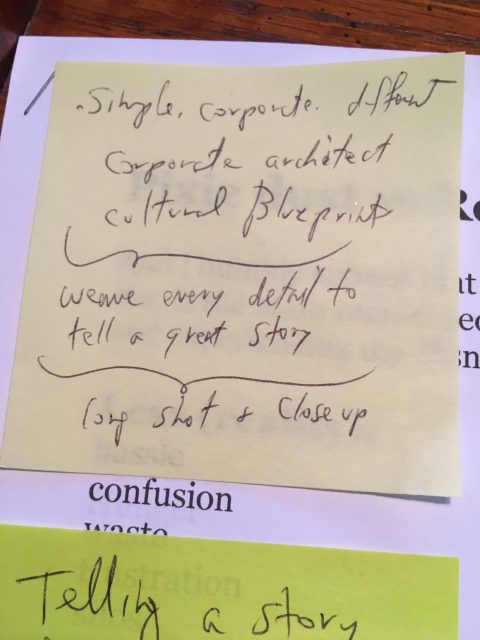 . Simple, corporate. different
corporate architect
cultural Blueprint
weave every detail to
tell a great story
long shot & Close up
confusion
waste
Telling a story